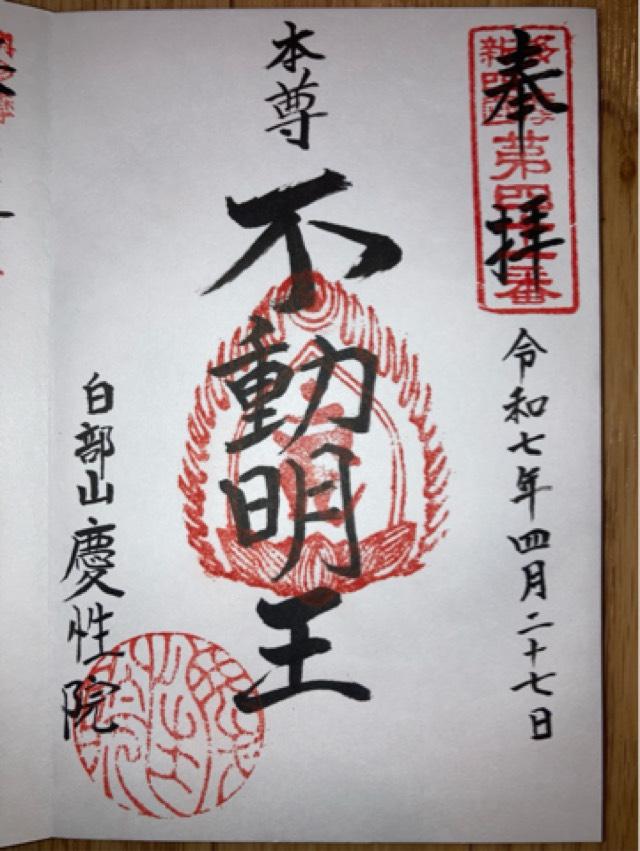 奉拝
第四十番
令和七年四月二十七日
本尊
不動明王
白部山慶性院